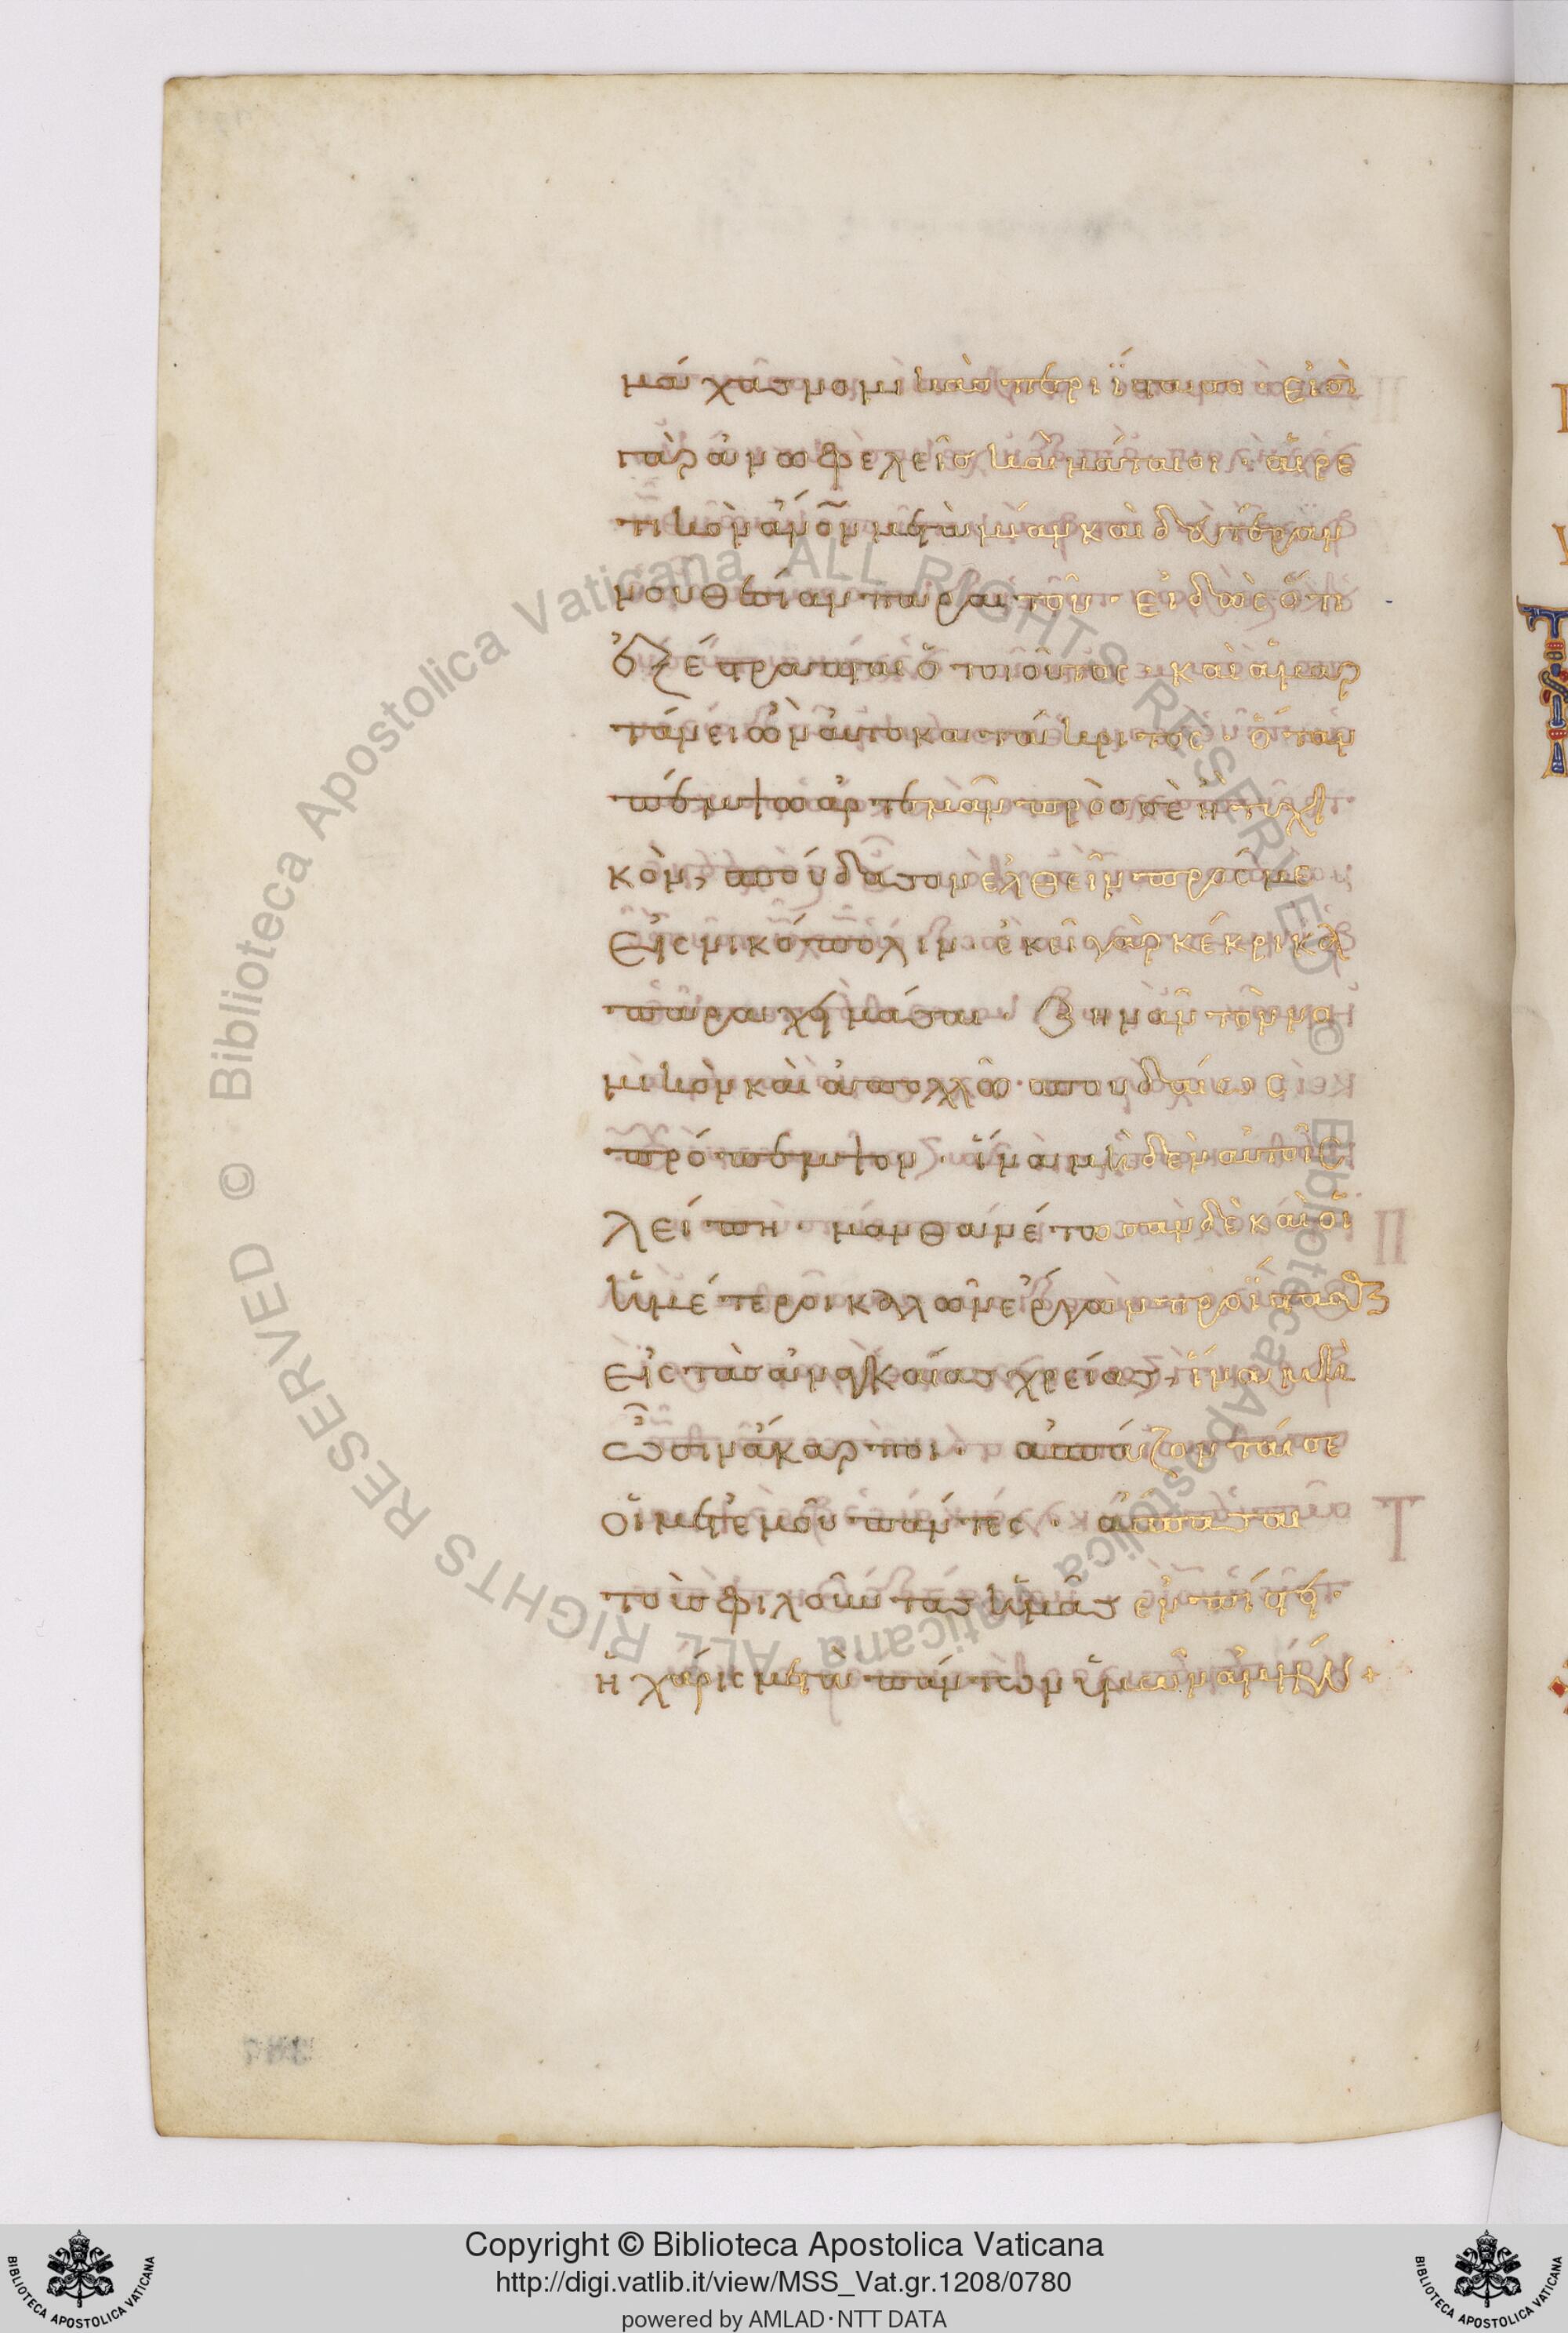 μάχας νομικὰς περιΐστασο· εἰσὶ
γὰρ ἀνωφελεῖς καὶ μάταιοι· αἱρε
τικὸν ἄνον μετὰ μίαν καὶ δευτέραν
νουθεσίαν παραιτοῦ· εἰδὼς ὅτι
ἐξέστραπται ὁ τοιοῦτος· καὶ ἁμαρ
τάνει ὢν αὐτοκατάκριτος· ὅταν
πέμψω ἀρτεμᾶν πρὸς σὲ ἢ τυχι
κὸν, σπούδασον ἐλθεῖν πρός με
εἰς νικόπολιν· ἐκεῖ γὰρ κέκρικα
παραχειμάσαι· ζηνᾶν τὸν νο
μικὸν καὶ ἀπολλὼ σπουδαίως
πρόπεμψον· ἵνα μηδὲν αὐτοῖς
λείπη· μανθανέτωσαν δὲ καὶ οἱ
ἡμέτεροι καλῶν ἔργων προΐστασθαι
εἰς τὰς ἀναγκαίας χρείας, ἵνα μὴ
ὦσιν ἄκαρποι· ἀσπάζονταί σε
οἱ μετ' ἐμοῦ πάντες· ἄσπασαι
τοὺς φιλοῦντας ἡμᾶς ἐν πίστει·
ἡ χάρις μετὰ πάντων ὑμῶν ἀμήν +
Copyright © Biblioteca Apostolica Vaticana
http://digi.vatlib.it/view/MSS_Vat.gr.1208/0780
powered by AMLAD·NTT DATA
BIBLIOTECA APOSTOLICA VATICANA
BIBLIOTECA APOSTOLICA VATICANA
© Biblioteca Apostolica Vaticana ALL RIGHTS RESERVED
© Biblioteca Apostolica Vaticana ALL RIGHTS RESERVED